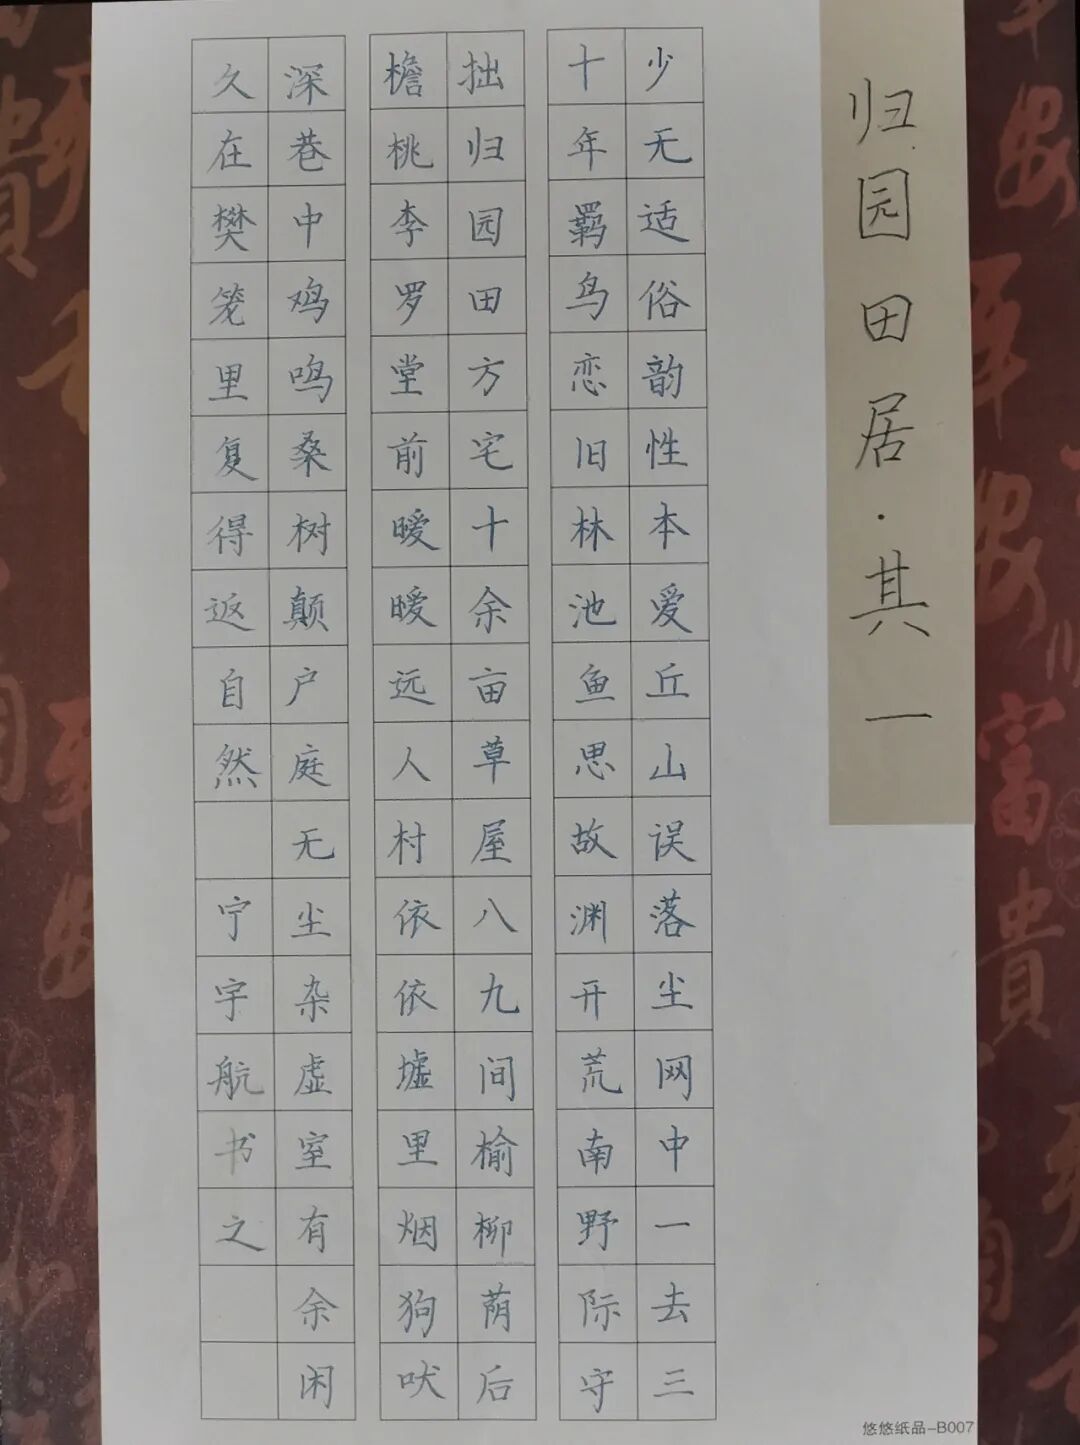 归园田居·其一
少无适俗韵性本爱丘山误落尘网中一去三
十年羁鸟恋旧林池鱼思故渊开荒南野际守
拙归园田方宅十余亩草屋八九间榆柳荫后
檐桃李罗堂前暧暧远人村依依墟里烟狗吠
深巷中鸡鸣桑树颠户庭无尘杂虚室有余闲
久在樊笼里复得返自然 宁宇航书之
悠悠纸品-B007